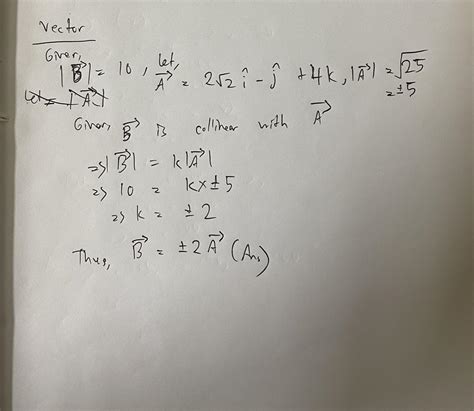 Vector
Given,
|B⃗| = 10, let, A⃗ = 2√2 î - ĵ + 4k, |A⃗| = √25
= ±5
Given, B⃗ is collinear with A⃗
⇒ |B⃗| = k|A⃗|
⇒ 10 = k × ±5
⇒ k = ±2
Thus, B⃗ = ±2A⃗ (Ans)